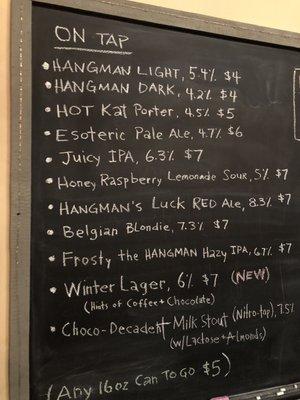 ON TAP
HANGMAN LIGHT, 5.4% $4
HANGMAN DARK, 4.2% $4
HOT Kat Porter, 4.5% $5
Esoteric Pale Ale, 4.7% $6
Juicy IPA, 6.3% $7
Honey Raspberry Lemonade Sour, 5% $7
HANGMAN'S Luck RED Ale, 8.3% $7
Belgian Blondie, 7.3% $7
Frosty the HANGMAN Hazy IPA, 6.7% $7
Winter Lager, 6% $7 (NEW)
(Hints of Coffee + Chocolate)
Choco-Decadent Milk Stout (Nitro-tap), 7.5%
(w/Lactose + Almonds)
(Any 16oz Can To Go $5)